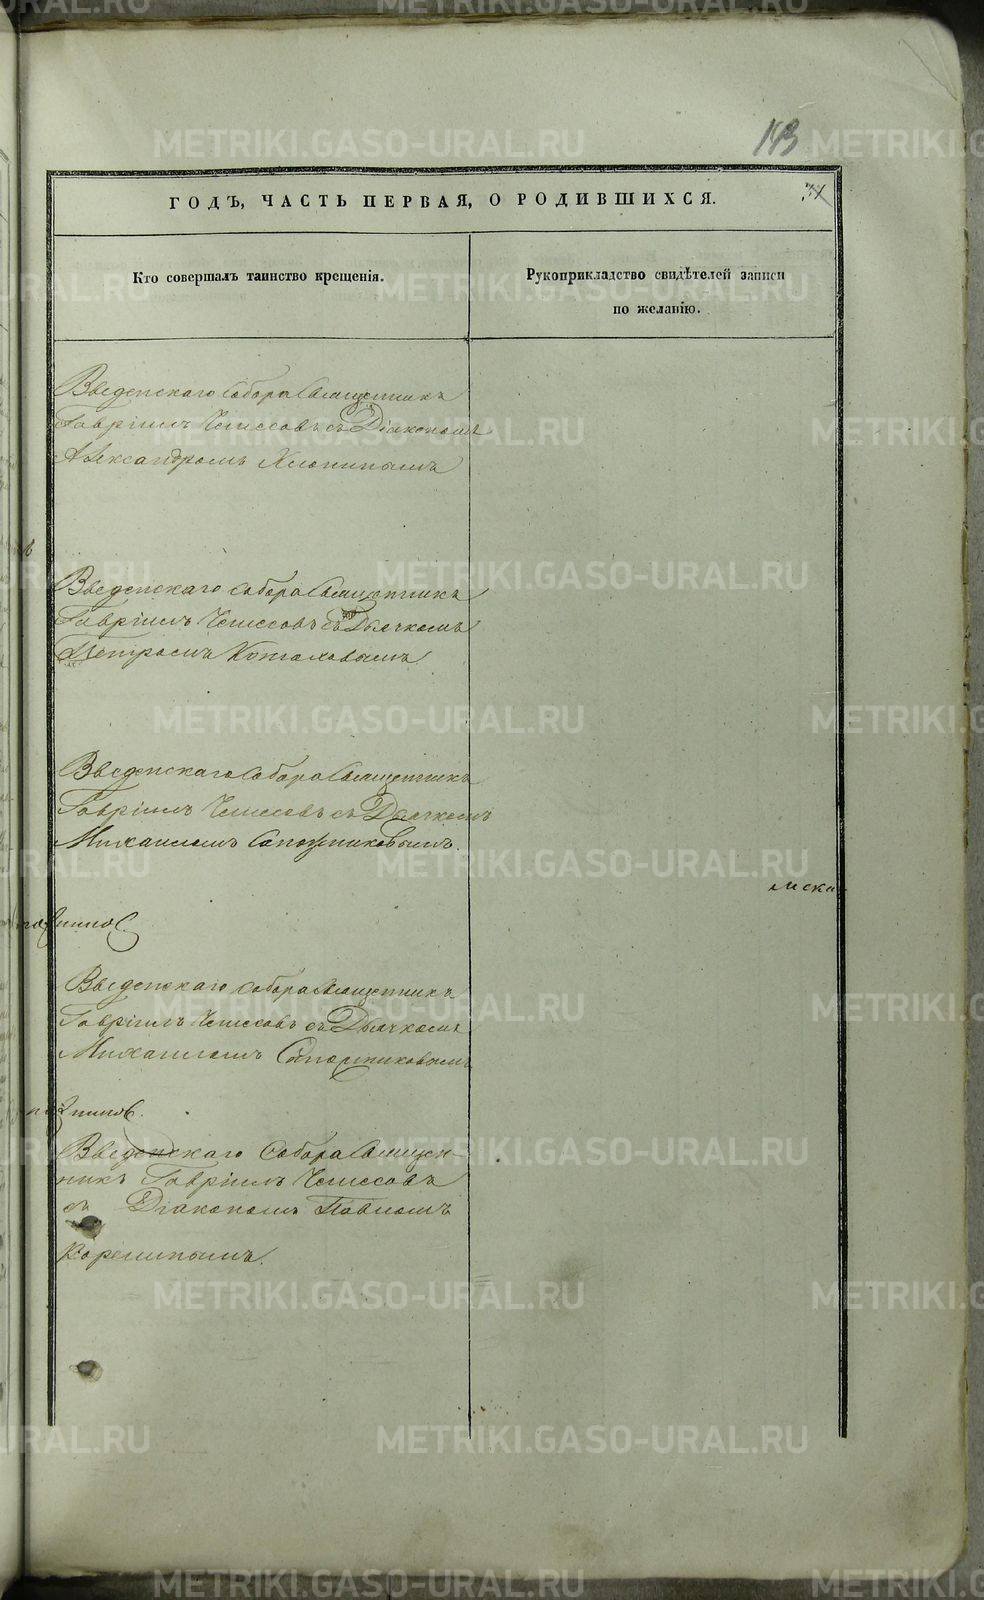 143
34
ГОДЪ, ЧАСТЬ ПЕРВАЯ, О РОДИВШИХСЯ.
Кто совершалъ таинство крещенія.
Рукоприкладство свидѣтелей записи
по желанію.
Введенскаго Собора Священникъ
Гавріилъ Чемесовъ съ Діакономъ
Александромъ Хлопинымъ
Введенскаго Собора Священникъ
Гавріилъ Чемесовъ съ Дьячкомъ
Петромъ
Введенскаго Собора Священникъ
Гавріилъ Чемесовъ съ Дьячкомъ
Михаиломъ Сапожниковымъ.
Введенскаго Собора Священникъ
Гавріилъ Чемесовъ съ Дьячкомъ
Михаиломъ Сапожниковымъ
Введенскаго Собора Священ-
никъ Гавріилъ Чемесовъ
съ Діакономъ Павломъ
METRIKI.GASO-URAL.RU